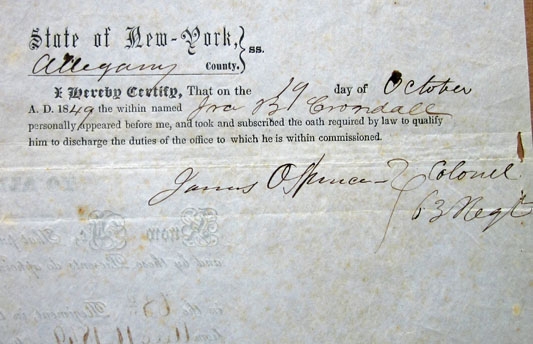 State of New-York, } ss.
Allegany County.
I Hereby Certify, That on the 19 day of October
A. D. 1849 the within named Ira B Crandall
personally appeared before me, and took and subscribed the oath required by law to qualify
him to discharge the duties of the office to which he is within commissioned.
James O Spencer Colonel
63 Regt